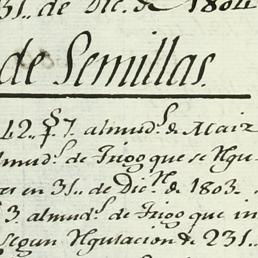 31.. de Dic.e de 1804
de Semillas.
42.. f.s 7. almud.s de Maiz
lmud.s de Trigo que se Regu
en 31.. de Dic.e de 1803.
3 almud.s de Trigo que in
Segun Regulacion de 231..